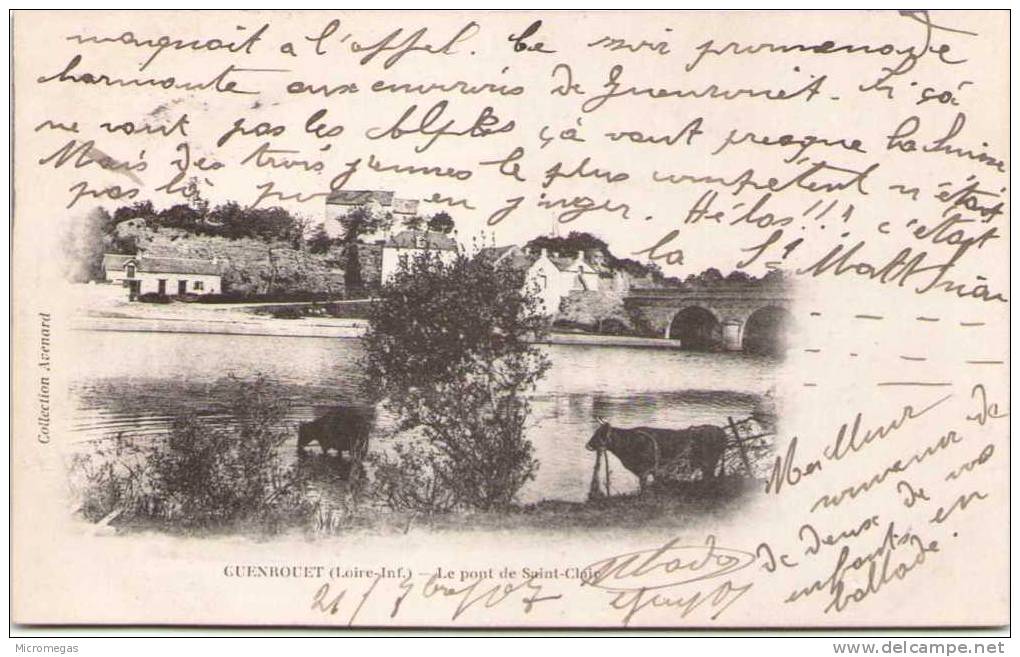 manquait à l'appel. Ce soir promenade
charmante aux environs de Guenrouet. Si ça
ne vaut pas les Alpes ça vaut presque la Suisse
Mais des trois jeunes le plus compétent n'était
pas là pour en juger. Hélas!!! c'était
la St Matthieu
Meilleur
souvenir de
de deux de vos
enfants en
ballade.
Collection Avenard
GUENROUET (Loire-Inf.) — Le pont de Saint-Clair
21/7bre/07
Micromegas
www.delcampe.net